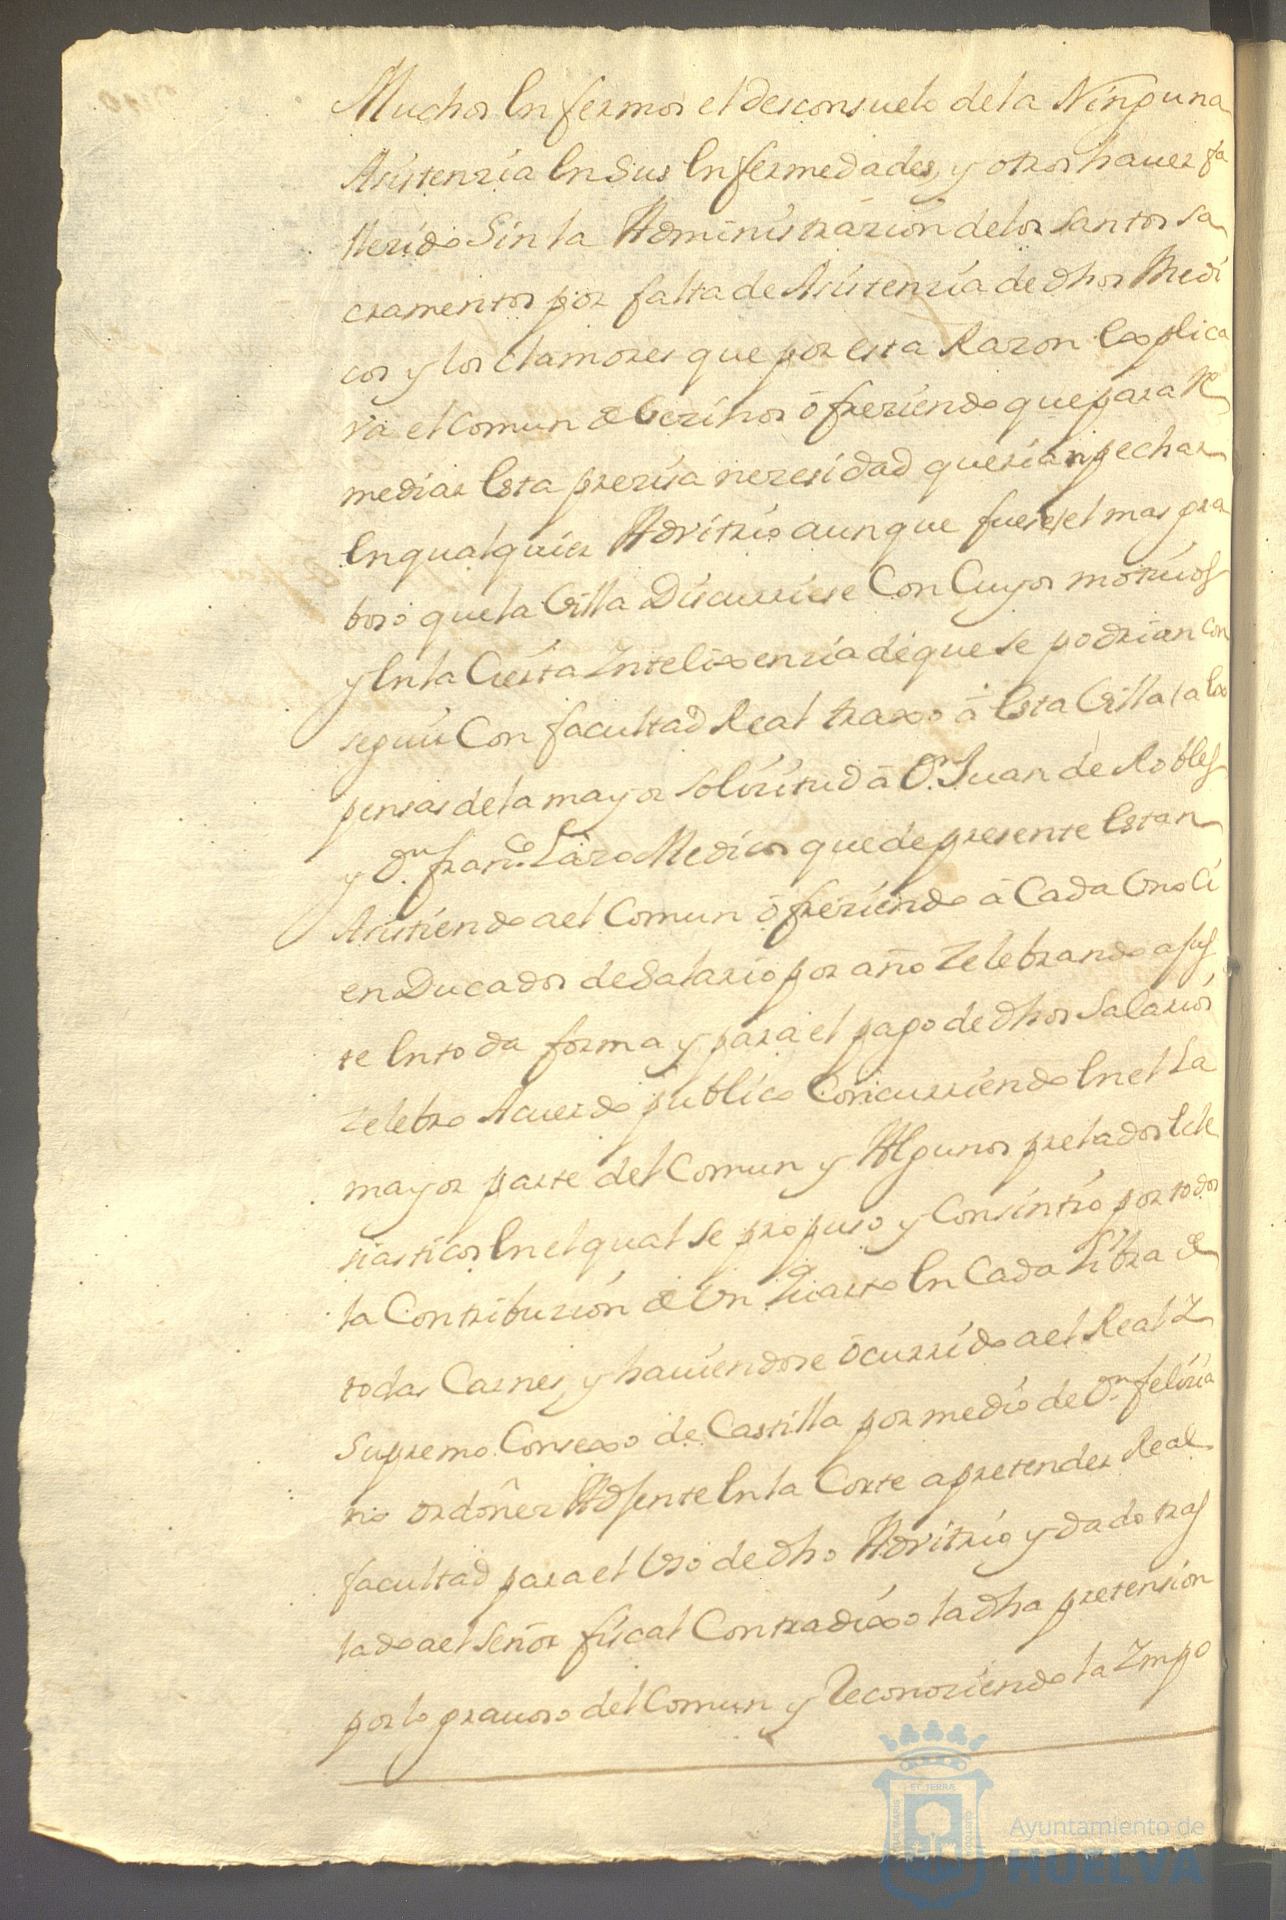 Muchos Enfermos el desconsuelo dela Ninguna
Asistenzia En Sus Enfermedades, y otros hauer fa
llezido Sin la Administrazion delos Santos Sa
cramentos por falta de Asistenzia de dhos Medi
cos y los clamores que por esta Razon Explica
va el Comun de Vezinos ofreziendo que para Re
mediar Esta prezisa nezesidad querian pechar
En qualquier Advitrio aunque fuese el mas gra
boso que la Villa Discurriese Con Cuyos motiuos
y En la Cierta Intelixenzia de que se podrian con
seguir Con facultad Real traxo â Esta Villa a Ex
pensas dela mayor solizitud â Dn. Juan de Robles
y Dn. Franco. Lazo Medicos que de presente Estan
Asistiendo a el Comun ofreziendo â Cada Uno Ci
en Ducados de Salario por año Zelebrando ajus
te En toda forma y para el pago de dhos Salarios
Zelebro Acuerdo publico Concurriendo En el La
mayor parte del Comun y Algunos prelados Ecle
siasticos En el qual se propuso y Consintio por todos
la Contribuzion de Un Quarto En Cada Libra de
todas Carnes, y hauiendose ocurrido a el Real Y
Supremo Consexo de Castilla por medio de Dn. Felizia
no Ordoñez Ajente En la Corte a pretender Real
facultad para el Uso de dho Advitrio y dado tras
lado a el Señor fiscal Contradixo la dha pretension
por lo grauoso del Comun y Reconoziendo la Impo
ET TERRÆ
Ayuntamiento de
HUELVA